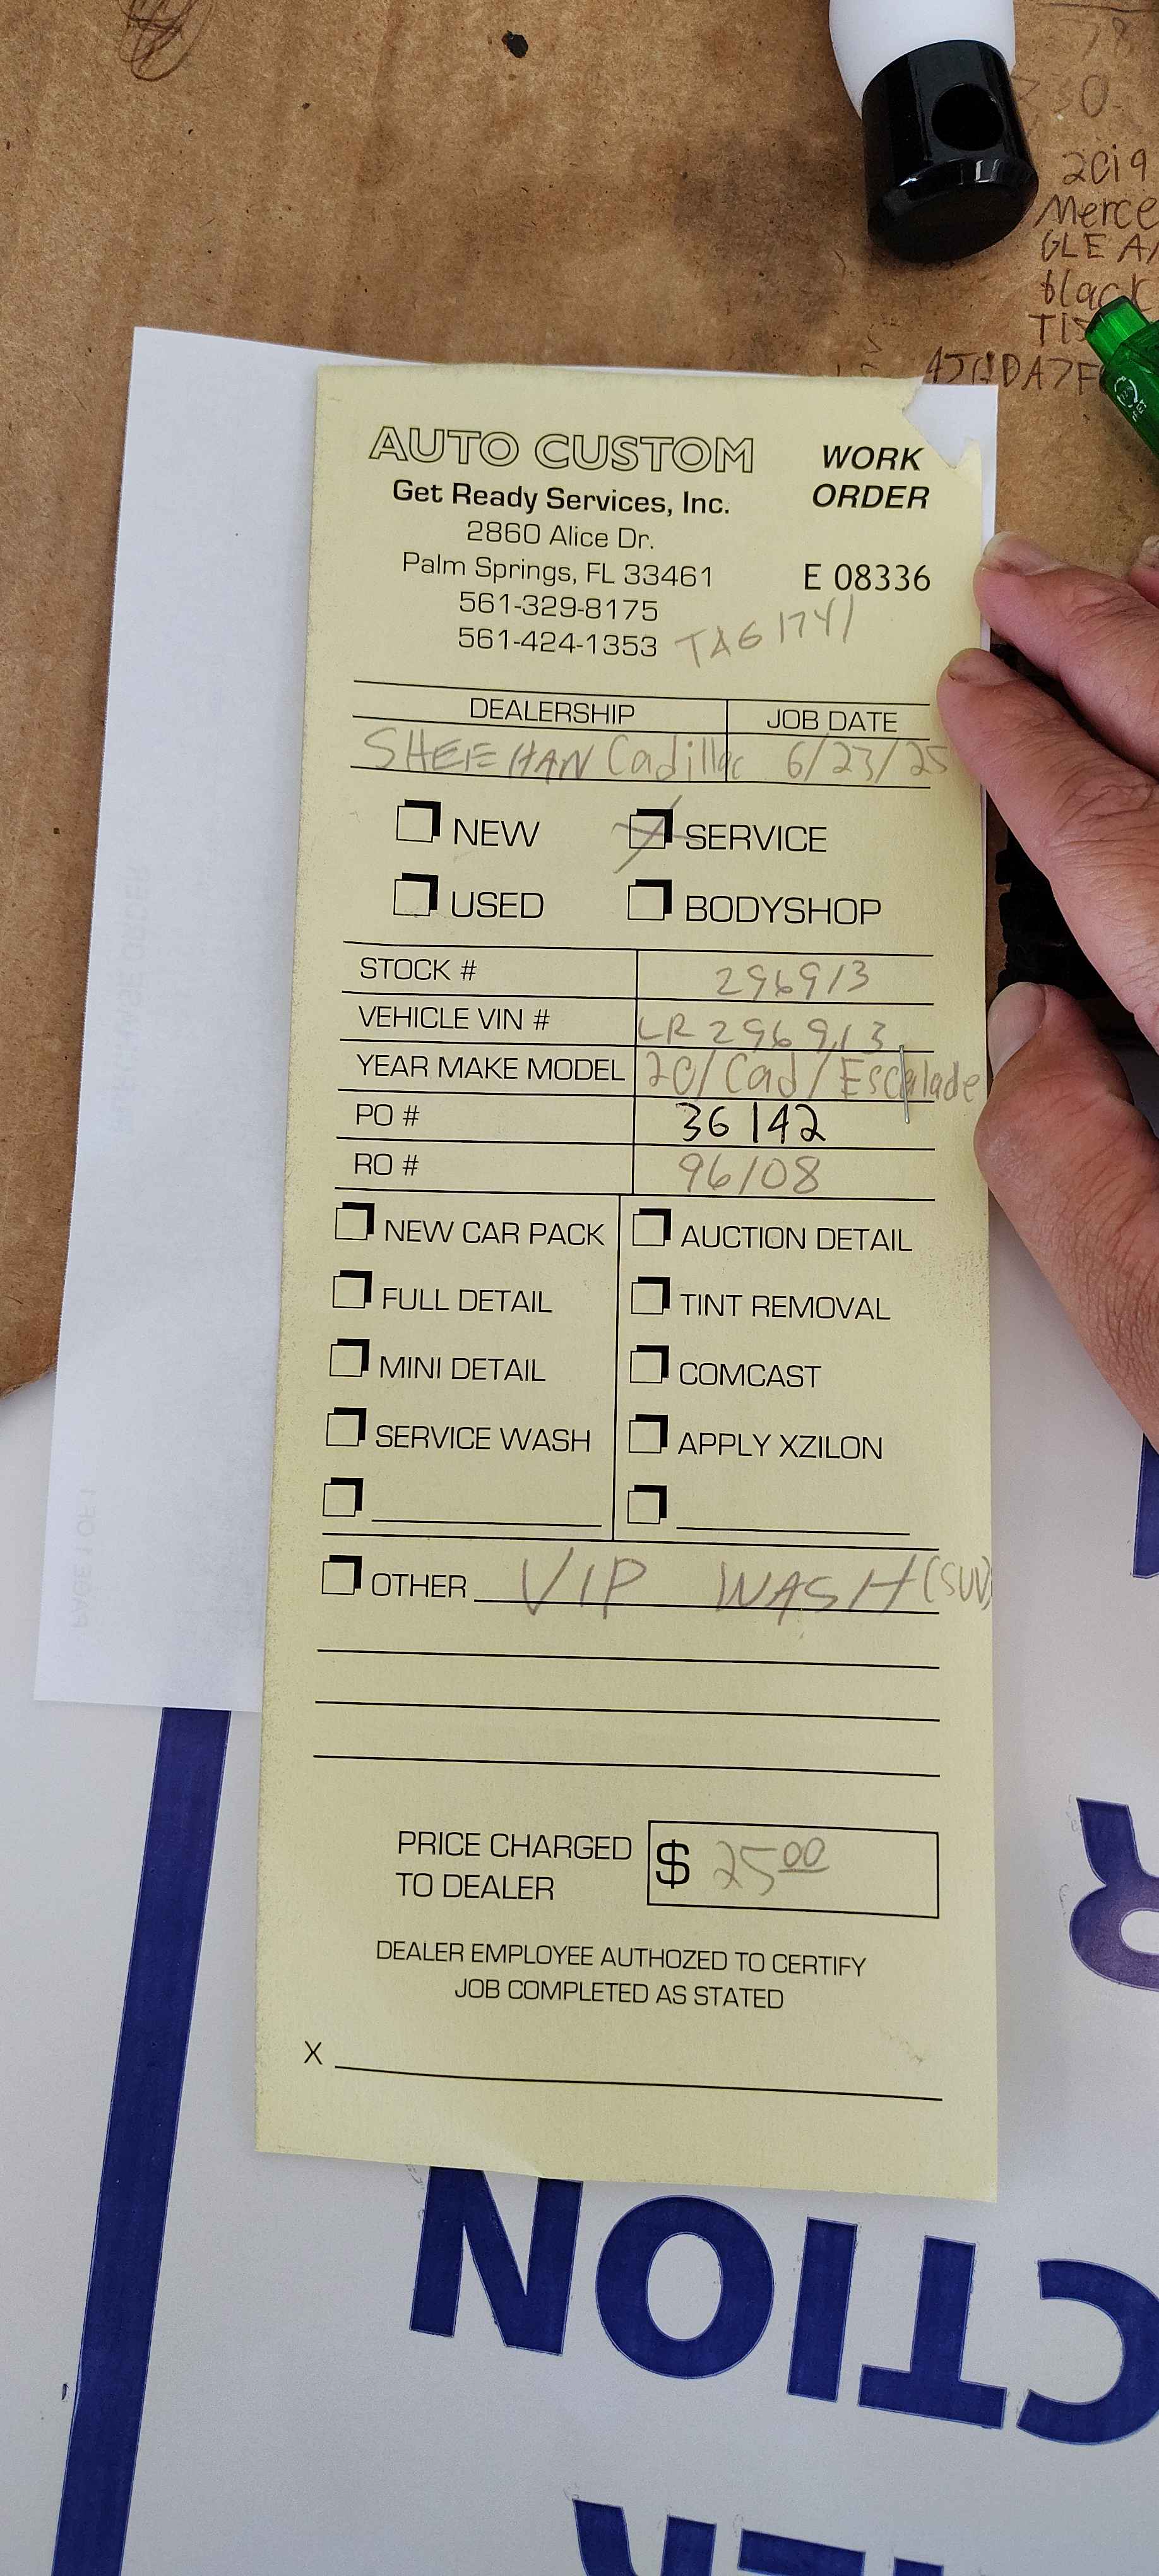 78
30
2019
Merce
GLE A
black
TIS
4JGDA7F
AUTO CUSTOM
WORK
ORDER
Get Ready Services, Inc.
2860 Alice Dr.
Palm Springs, FL 33461
E 08336
561-329-8175
561-424-1353
TAG 1741
DEALERSHIP JOB DATE
SHEEHAN Cadillac 6/23/25
NEW SERVICE
USED BODYSHOP
STOCK # 296913
VEHICLE VIN # LR296913
YEAR MAKE MODEL 20/Cad/Escalade
PO # 36142
RO # 96108
NEW CAR PACK AUCTION DETAIL
FULL DETAIL TINT REMOVAL
MINI DETAIL COMCAST
SERVICE WASH APPLY XZILON
OTHER VIP WASH (SUV)
PRICE CHARGED
TO DEALER
$ 25 00
DEALER EMPLOYEE AUTHOZED TO CERTIFY
JOB COMPLETED AS STATED
X
R
CTION
ER